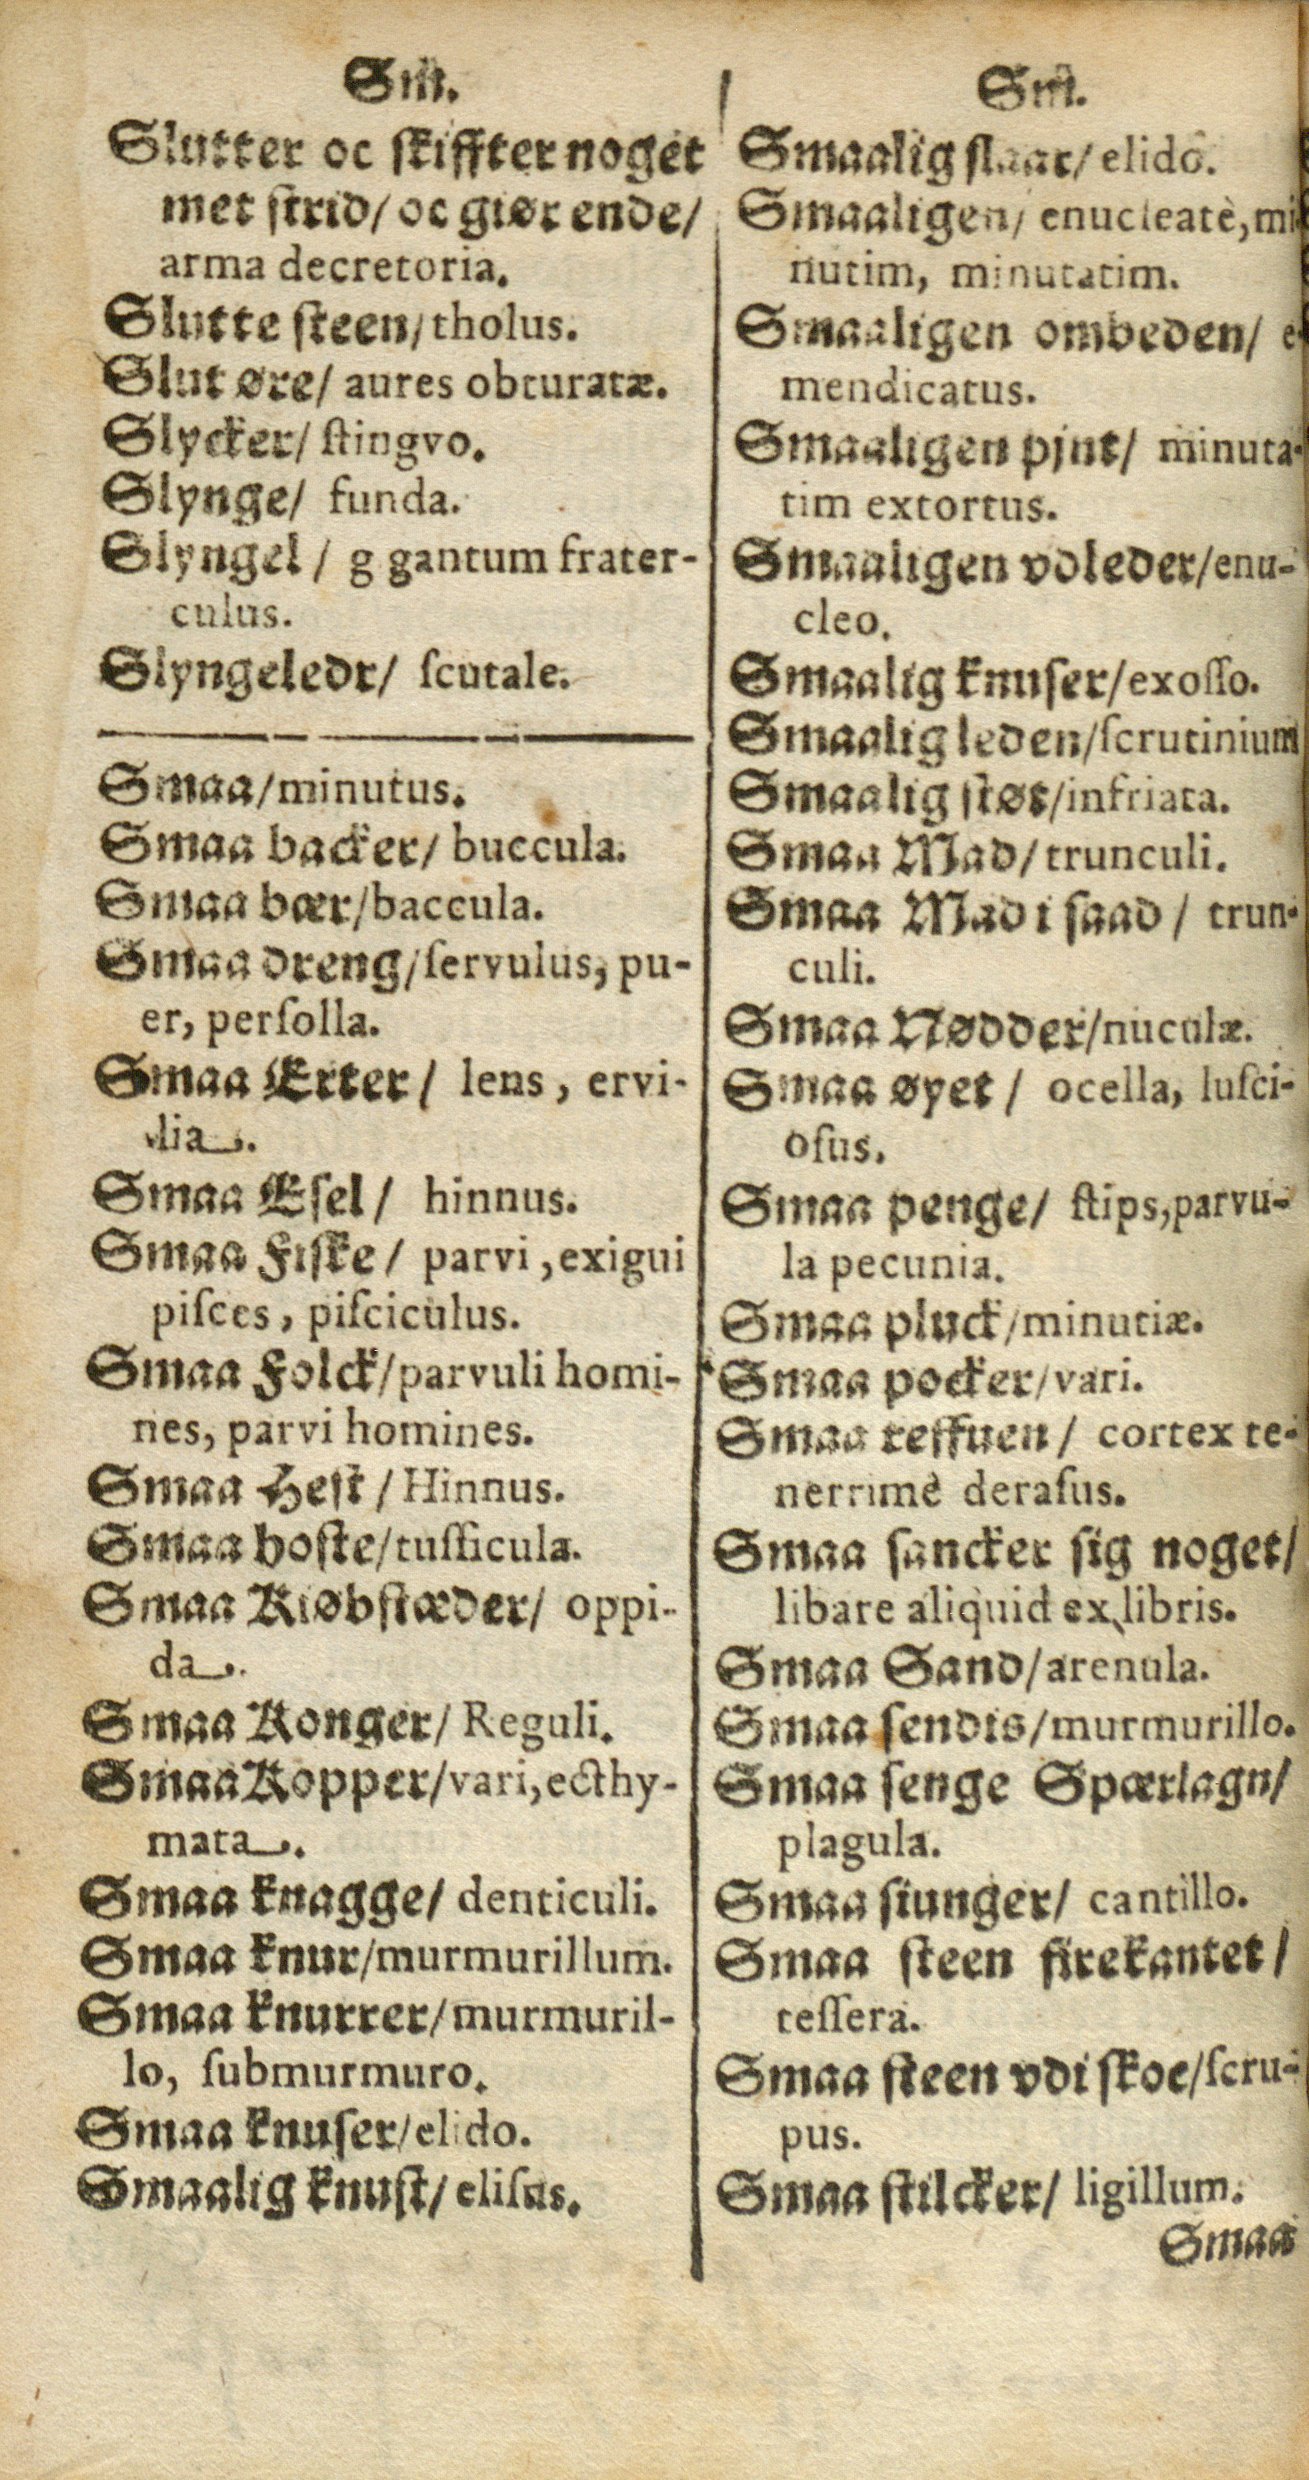 Sm.
Slutter oc skiffter noget
met strid/ oc giør ende/
arma decretoria.
Slutte steen/ tholus.
Slut øre/ aures obturatæ.
Slycker/ stingvo.
Slynge/ funda.
Slyngel / g gantum frater-
culus.
Slyngeledr/ ſcutale.
Smaa/minutus.
Smaa backer/ buccula.
Smaa bær/baccula.
Smaa dreng/ſervulus, pu-
er, perſolla.
Smaa Erter/ lens, ervi-
lia.
Smaa Eſel/ hinnus.
Smaa Fiſke/ parvi, exigui
piſces, piſciculus.
Smaa Folck/parvuli homi-
nes, parvi homines.
Smaa Heſt/Hinnus.
Smaa hoſte/tuſſicula.
Smaa Kiøbſtæder/ oppi-
da.
Smaa Konger/ Reguli.
Smaa Kopper/vari, ecthy-
mata.
Smaa knagge/ denticuli.
Smaa knur/murmurillum.
Smaa knurrer/murmuril-
lo, ſubmurmuro.
Smaa knuſer/elido.
Smaalig knuſt/ eliſus.
Sm.
Smaalig ſlaar/ elido.
Smaaligen/ enucleatè, mi-
nutim, minutatim.
Smaaligen ombeden/ e-
mendicatus.
Smaaligen pjnt/ minuta-
tim extortus.
Smaaligen vdleder/enu-
cleo.
Smaalig knuſer/exoſſo.
Smaalig leden/ſcrutinium
Smaalig ſtøt/infriata.
Smaa Mad/trunculi.
Smaa Mad i ſaad/ trun-
culi.
Smaa Nødder/nuculæ.
Smaa øyet/ ocella, luſci-
oſus.
Smaa penge/ ſtips, parvu-
la pecunia.
Smaa pluck/minutiæ.
Smaa pocker/vari.
Smaa reffuen/ cortex te-
nerrimè deraſus.
Smaa ſancker ſig noget/
libare aliquid ex libris.
Smaa Sand/arenula.
Smaa ſendis/murmurillo.
Smaa ſenge Spærlagn/
plagula.
Smaa ſiunger/ cantillo.
Smaa ſteen firekantet/
teſſera.
Smaa ſteen vdi ſkoe/ſcru-
pus.
Smaa ſtilcker/ ligillum.
Smaa